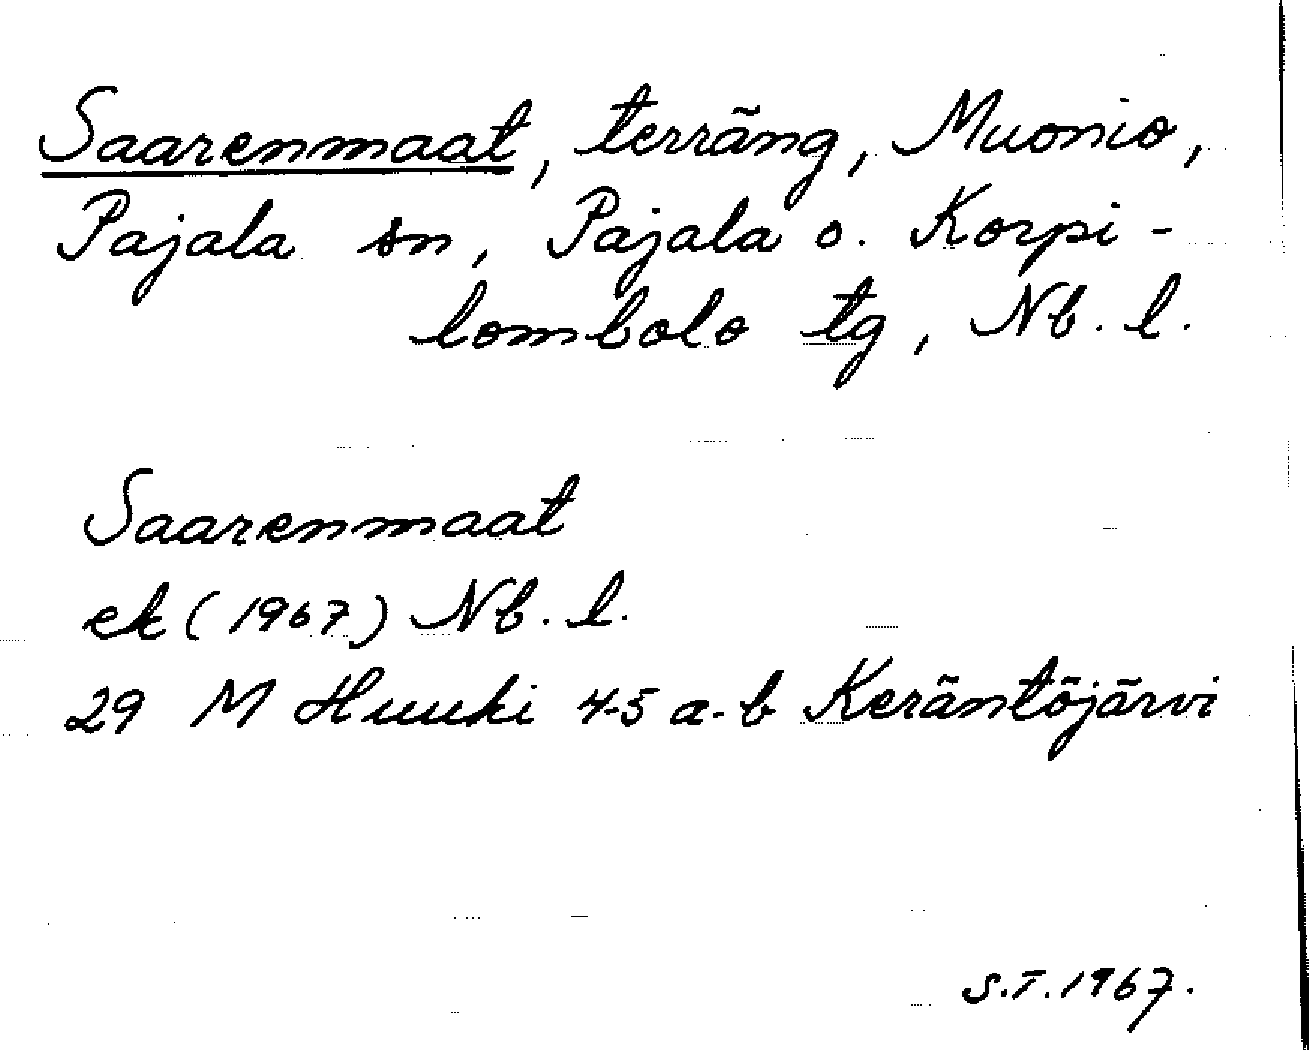 Saarenmaat, terräng, Muonio,
Pajala sn, Pajala o. Korpi-
lombolo tg, Nb. l.
Saarenmaat
ek (1967) Nb. l.
29 M Huuki 4-5 a-b Keräntöjärvi
S.T. 1967.